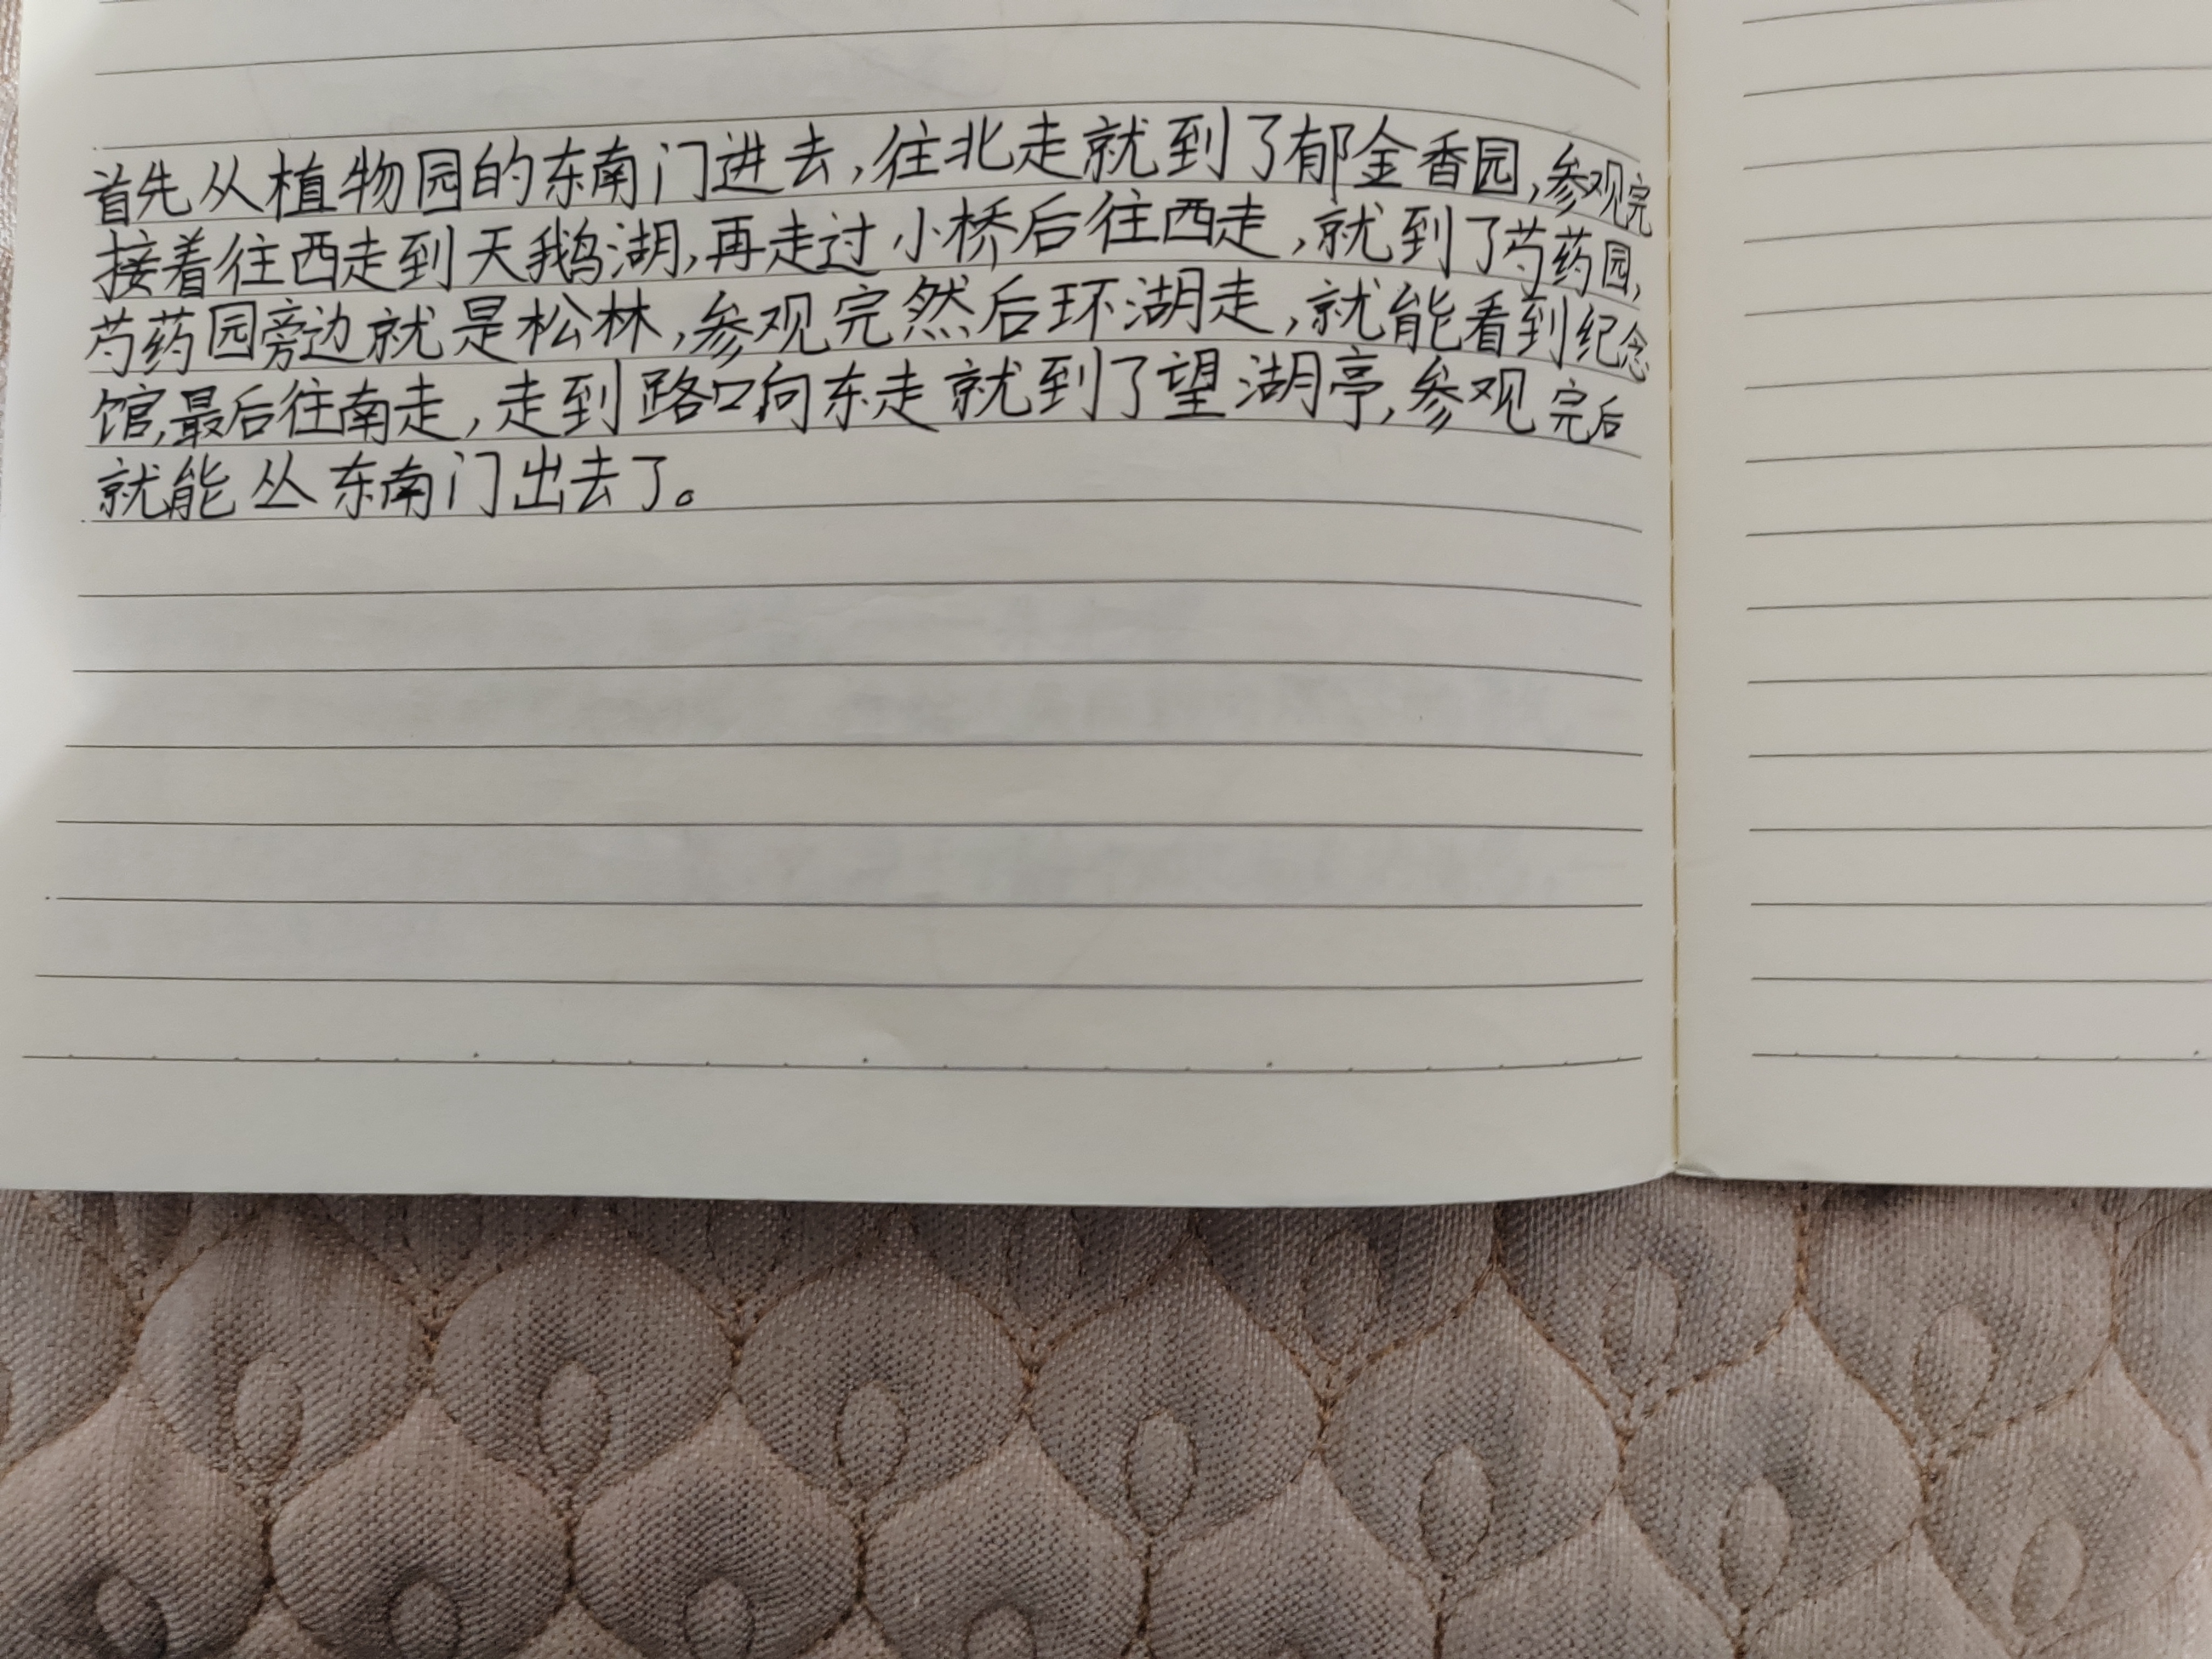 首先从植物园的东南门进去,往北走就到了郁金香园,参观完
接着往西走到天鹅湖,再走过小桥后往西走,就到了芍药园,
芍药园旁边就是松林,参观完然后环湖走,就能看到纪念
馆,最后往南走,走到路口向东走就到了望湖亭,参观完后
就能丛东南门出去了。